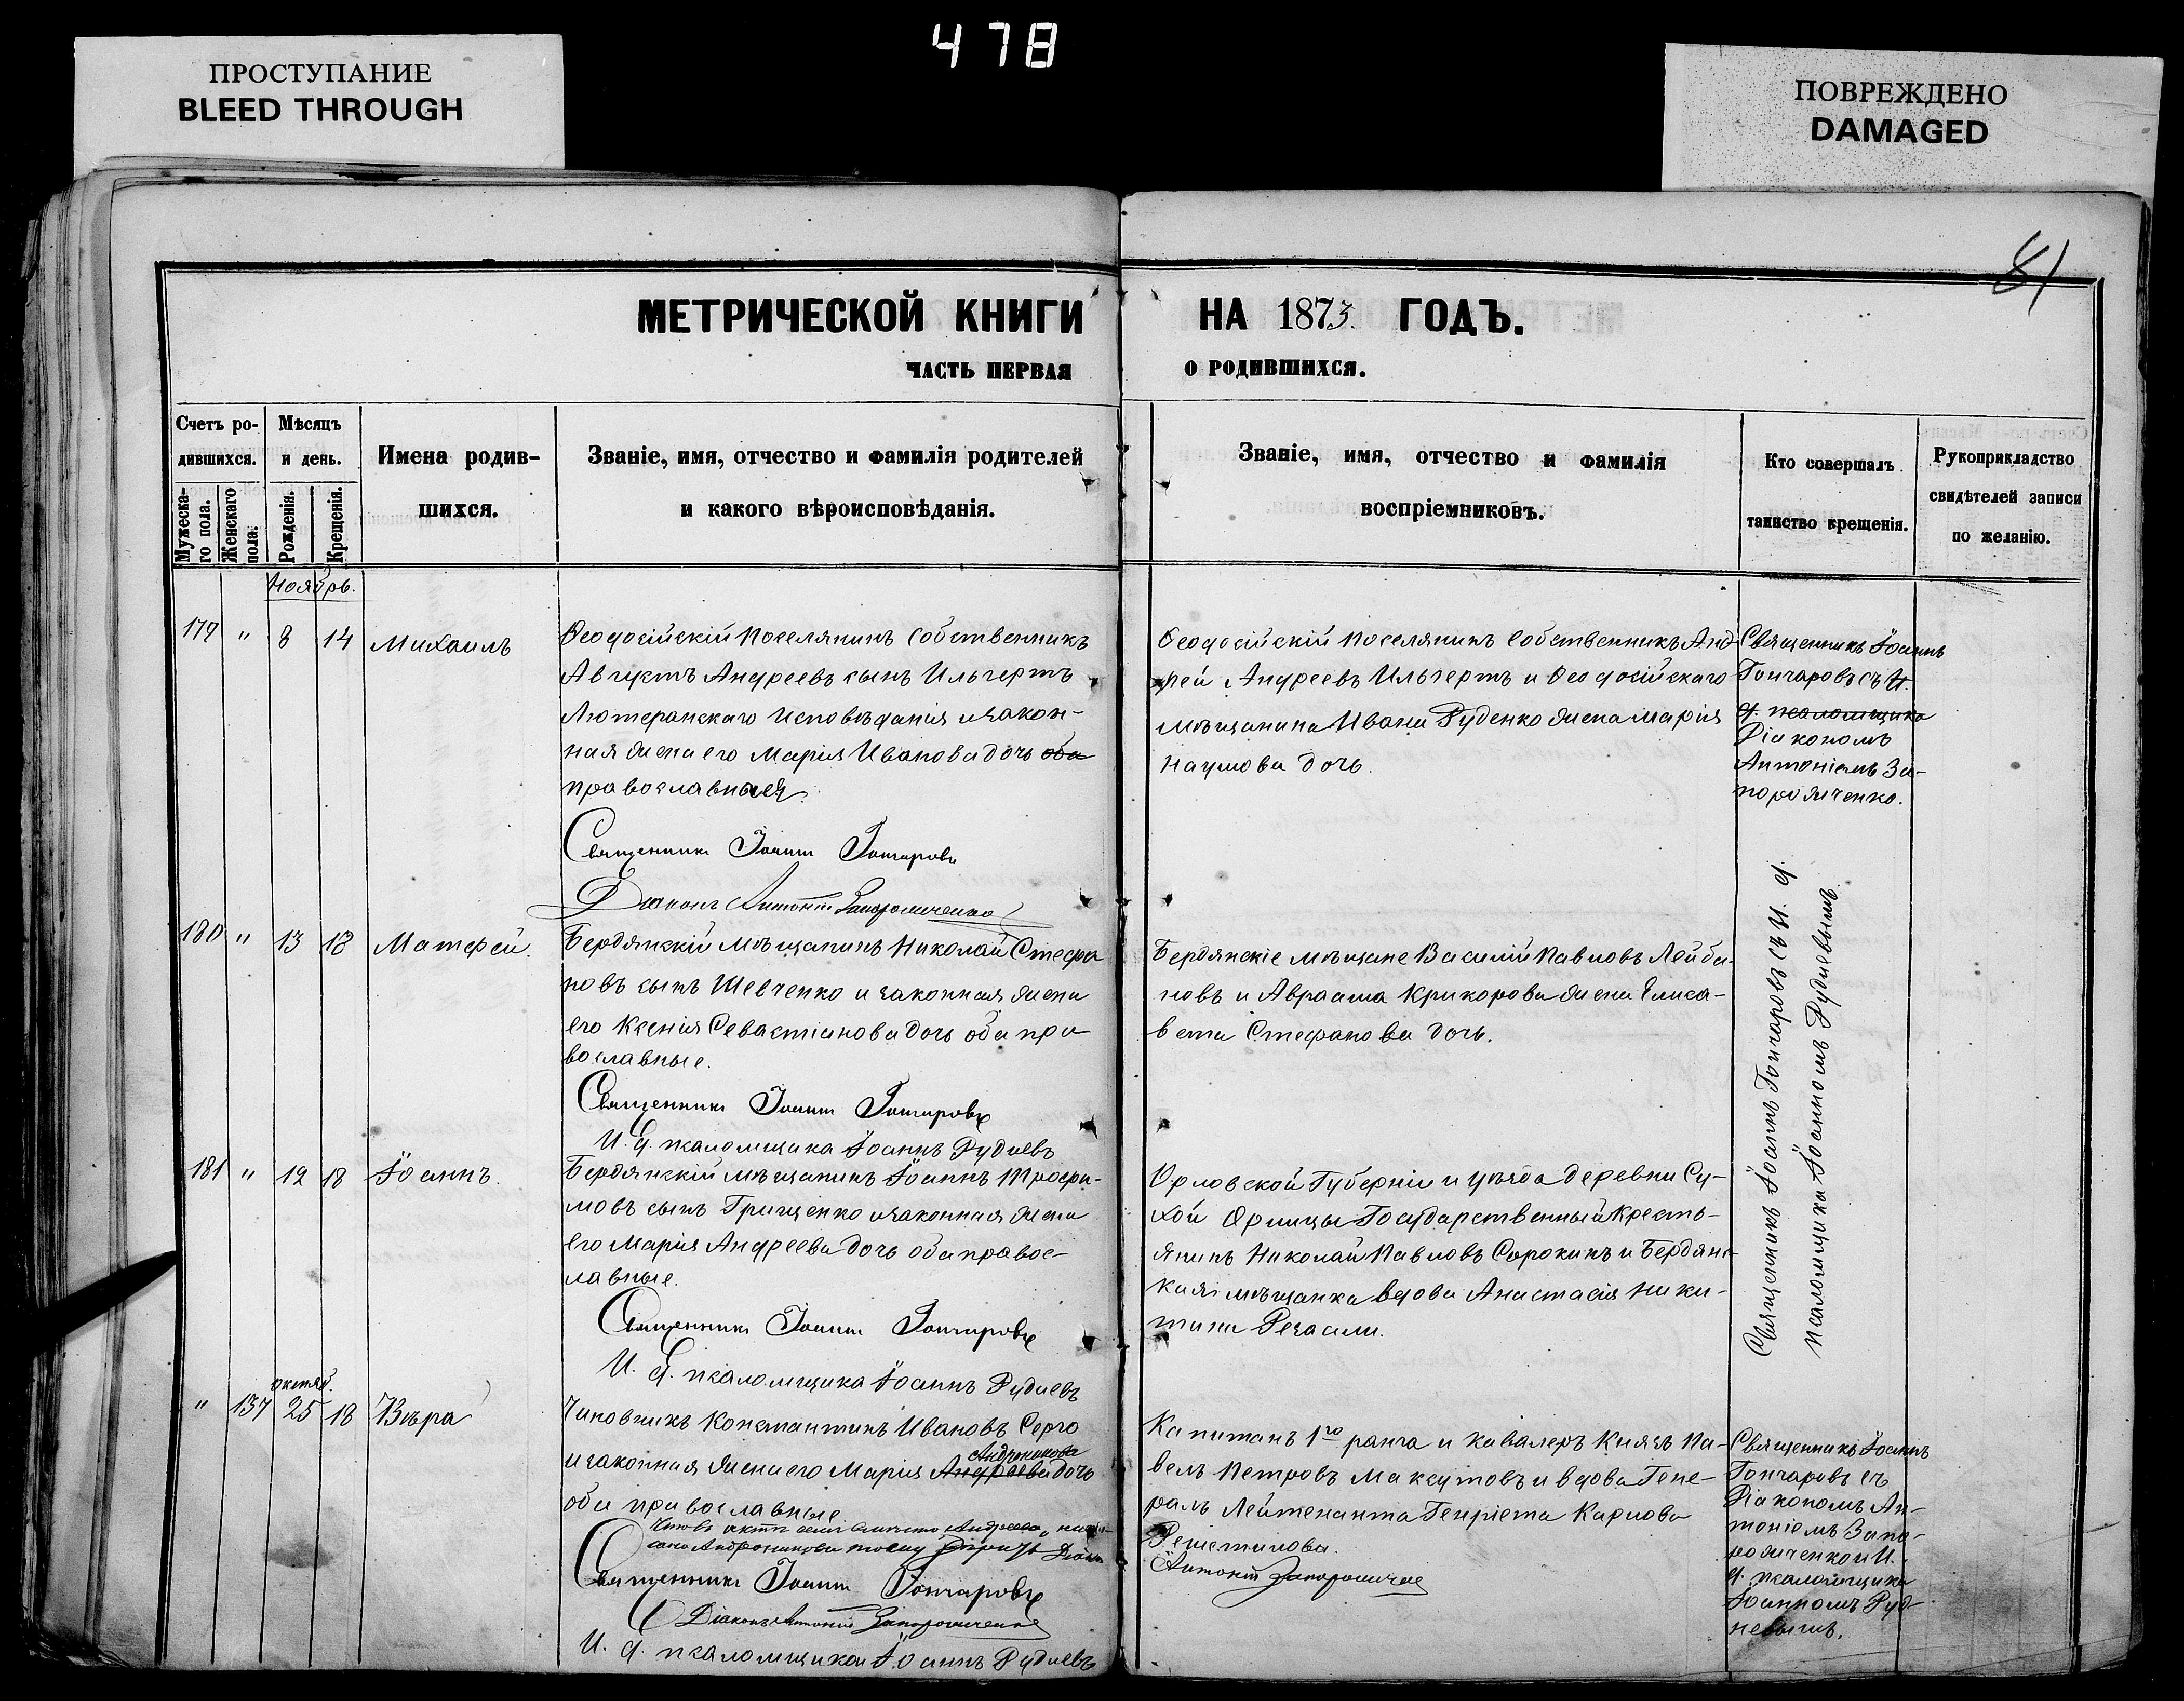 478
ПРОСТУПАНИЕ
BLEED THROUGH
ПОВРЕЖДЕНО
DAMAGED
81
МЕТРИЧЕСКОЙ КНИГИ
ЧАСТЬ ПЕРВАЯ
НА 1873. ГОДЪ.
О РОДИВШИХСЯ.
Счетъ ро-
дившихся.
Мужеска-
го пола.
Женскаго
пола.
Мѣсяцъ
и день.
Рожденія.
Крещенія.
Имена родив-
шихся.
Званіе, имя, отчество и фамилія родителей
и какого вѣроисповѣданія.
Званіе, имя, отчество и фамилія
воспріемниковъ.
Кто совершалъ
таинство крещенія.
Рукоприкладство
свидѣтелей записи
по желанію.
Ноябрь.
179 " 8 14 Михаилъ
Ѳеодосійскій Поселянинъ Собственникъ
Августъ Андреевъ сынъ Ильгертъ
Лютеранскаго Исповѣданія и закон-
ная жена его Марія Иванова дочь оба
православная.
Священникъ Іоаннъ Гончаровъ
Діаконъ Антоній Запорожченко
Ѳеодосійскій Поселянинъ Собственникъ Анд-
рей Андреевъ Ильгертъ и Ѳеодосійскаго
мѣщанина Ивана Руденко жена Марія
Наумова дочь.
Священникъ Іоаннъ
Гончаровъ съ И.
д. псаломщика
Діакономъ
Антоніемъ За-
порожченко.
180 " 13 18 Матфей.
Бердянскій мѣщанинъ Николай Стефа
новъ сынъ Шевченко и законная жена
его Ксенія Севастіанова дочь оба пра
вославные.
Священникъ Іоаннъ Гончаровъ
И. д. псаломщика Іоаннъ Рудневъ
Бердянскіе мѣщане Василій Павловъ
новъ и Авраама Крикорова жена Елиса-
вета Стефанова дочь.
Священникъ Іоаннъ Гончаровъ съ И. д.
псаломщика Іоанномъ Рудневымъ
181 " 12 18 Іоаннъ.
Бердянскій мѣщанинъ Іоаннъ Трофи-
мовъ сынъ Грищенко и законная жена
его Марія Андреева дочь оба правос-
лавные.
Священникъ Іоаннъ Гончаровъ
И. д. псаломщика Іоаннъ Рудневъ
Орловской Губерніи и уѣзда деревни Су-
хой Орлицы Государственный Кресть-
янинъ Николай Павловъ Сорокинъ и Бердянс-
кая мѣщанка вдова Анастасія Ники-
тина
октяб.
" 137 25 18 Вѣра
Чиновникъ Константинъ Ивановъ Серго
Андроникова
и законная жена его Марія Андреева дочь
оба православные
Что въ актѣ семъ вмѣсто Андреева, напи-
сано Андроникова
Священникъ Іоаннъ Гончаровъ
Діаконъ Антоній Запорожченко
И. д. псаломщика Іоаннъ Рудневъ
Капитанъ 1го ранга и кавалеръ Князь Па-
велъ Петровъ Максутовъ и вдова Гене-
ралъ Лейтенанта Генріета Карлова
Антоній Запорожченко
Священникъ Іоаннъ
Гончаровъ съ
Діакономъ Ан-
тоніемъ Запо-
рожченко и И.
д. псаломщика
Іоанномъ Руд-
невымъ.